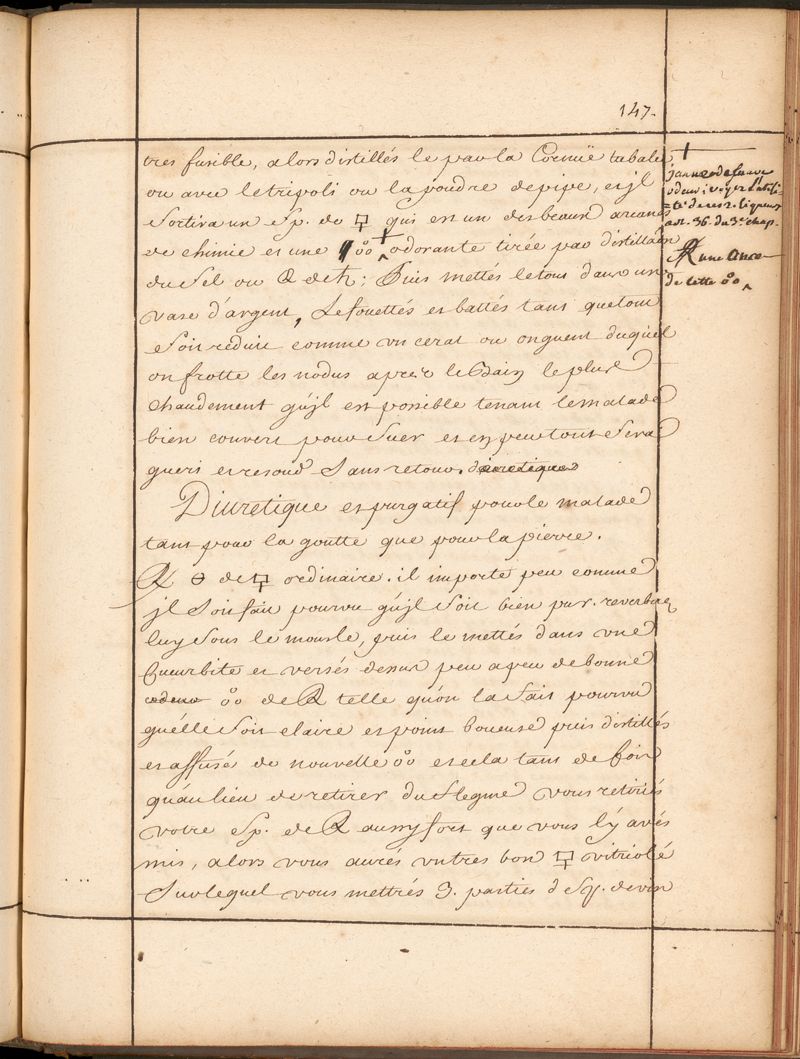 147.
tres fusible, alors distillés le par la Cornüe tubalé
ou avec le tripoli ou la poudre de pipe, et jl
sortira un Sp. de 🜿 qui est un des beaux arcanes
de chimie et une oo odorante tirée par distillaõn
du sel ou de ♄; Puis mettés le tout dans un
vase d'argent, Le fouettés et battés tant que tout
soit reduit comme un cerat ou onguent duquel
on frotte les nodus apres le Bain le plus
chaudement qu'jl est possible tenant le malade
bien couvert pour suer et en peu tout sera
gueri et resoud sans retour. diuretique
Diuretique et purgatif pour le malade
tant pour la goutte que pour la pierre.
🜔 de 🜿 ordinaire. il importe peu comme
jl soit fait pourvu qu'jl soit bien pur. reverberez
luy sous le moufle, puis le mettés dans une
Cucurbite et versés dessus peu a peu de bonne
oo de telle qu'on la fait pourvu
qu'elle soit claire et point boueuse puis distillés
et affusé de nouvelle oo et cela tant de fois
qu'au lieu de retirer du flegme vous retiriés
votre Sp. de aussy fort que vous l'y avés
mis, alors vous aurés un tres bon 🜿 vitriolé
Sur lequel vous mettrés 3. parties d Sp. de vin
+
jaune et de suave
odeur; voyez l'utili=
té de ces 2. liqueurs
art. 36. du 3e. chap.
une once
de cette oo